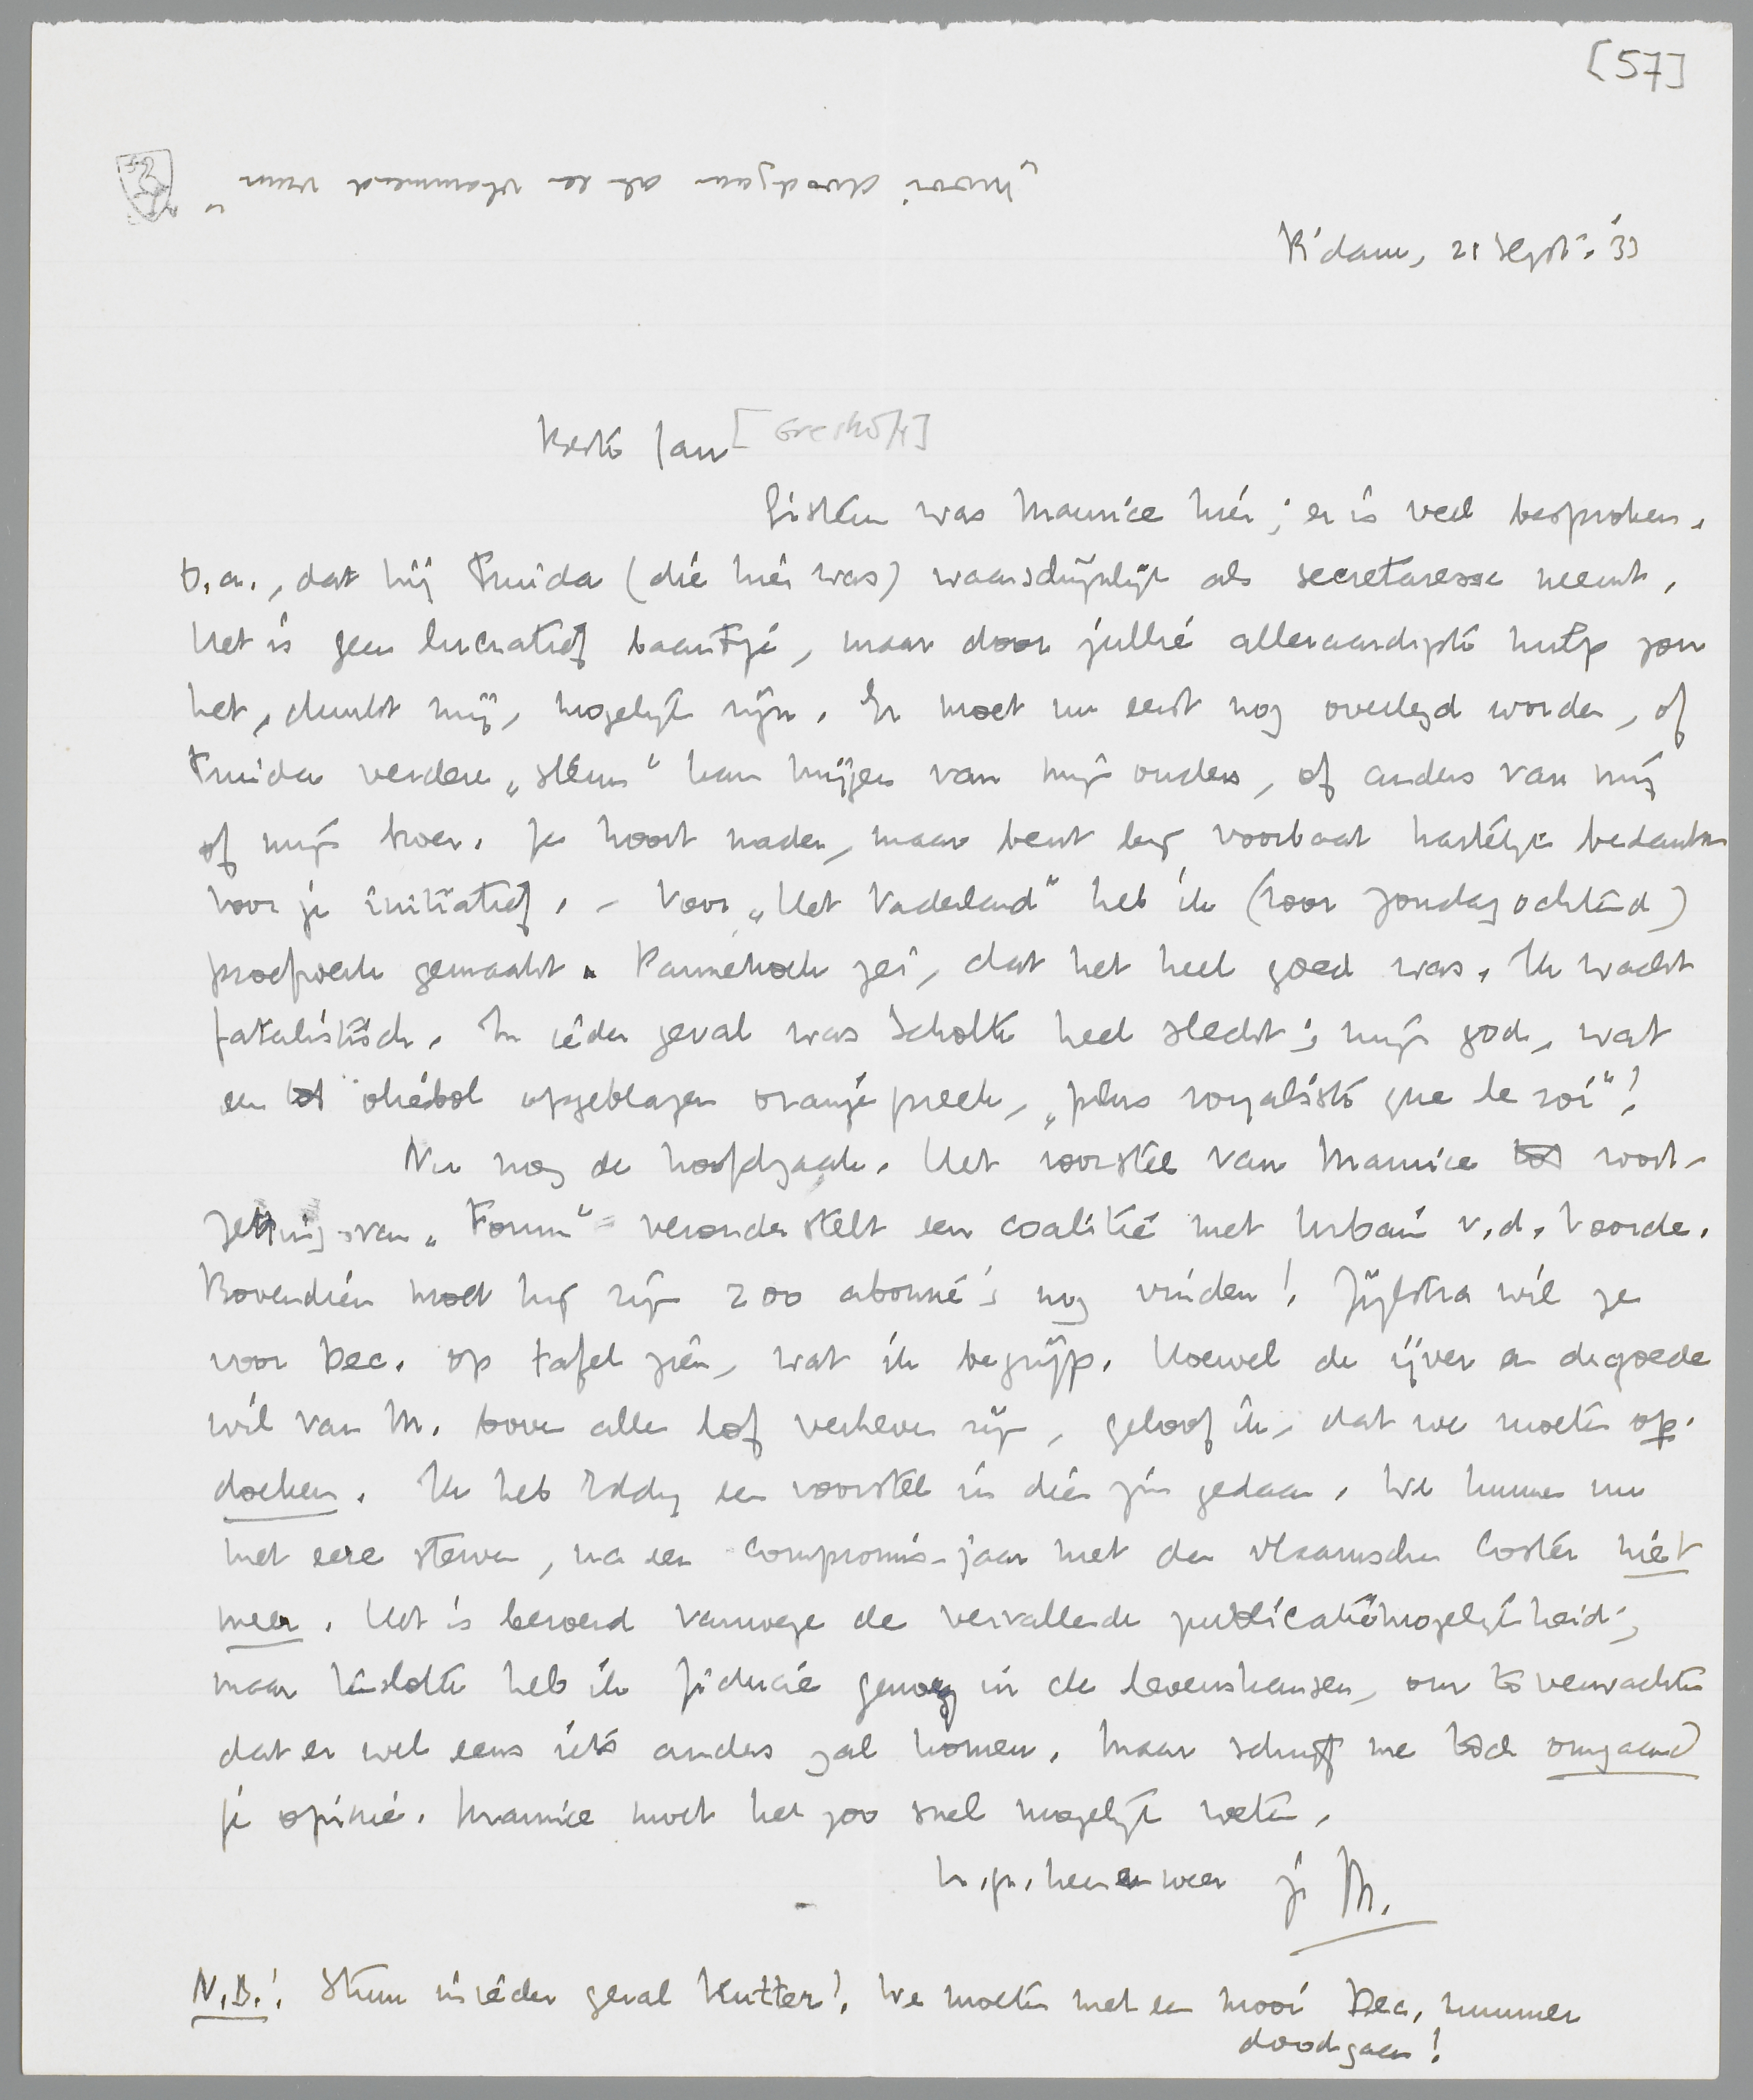 [57]
„mooi doodgaan als een vlammend vuur”
R'dam, 21 Sept. '33
Beste Jan [Greshoff]
Gisteren was Maurice hier; er is veel besproken,
o.a., dat hij Truida (die hier was) waarschijnlijk als secretaresse neemt.
Het is geen lucratief baantje, maar door jullie alleraardigste hulp zou
het, dunkt mij, mogelijk zijn. Er moet nu eerst nog overlegd worden, of
Truida verdere „steun” kan krijgen van mijn ouders, of anders van mij
of mijn broer. Je hoort nader, maar bent bij voorbaat hartelijk bedankt
voor je initiatief. – Voor „Het Vaderland” heb ik (voor Zondagochtend)
proefwerk gemaakt. Pannekoek zei, dat het heel goed was. Ik wacht
fatalistisch. In ieder geval was Scholte heel slecht; mijn god, wat
een oliebol opgeblazen oranjepreek, „plus royaliste que le roi”!
Nu nog de hoofdzaak. Het voorstel van Maurice tot voort-
zetting van „Forum” veronderstelt een coalitie met Urbain v.d. Voorde.
Bovendien moet hij zijn 200 abonné's nog vinden! Zijlstra wil ze
voor Dec. op tafel zien, wat ik begrijp. Hoewel de ijver en de goede
wil van M. boven alle lof verheven zijn, geloof ik, dat we moeten op-
doeken. Ik heb Eddy een voorstel in dien zin gedaan. We kunnen nu
met eere sterven, na een compromis-jaar met den vlaamschen Coster niet
meer. Het is beroerd vanwege de vervallende publicatiemogelijkheid;
maar tenslotte heb ik fiducie genoeg in de levenskansen, om te verwachten
dat er wel eens iets anders zal komen. Maar schrijf me toch omgaand
je opinie. Maurice moet het zoo snel mogelijk weten.
h.gr. heen en weer je M.
N.B.! Stuur in ieder geval Kutter! We moeten met een mooi Dec. nummer
doodgaan!